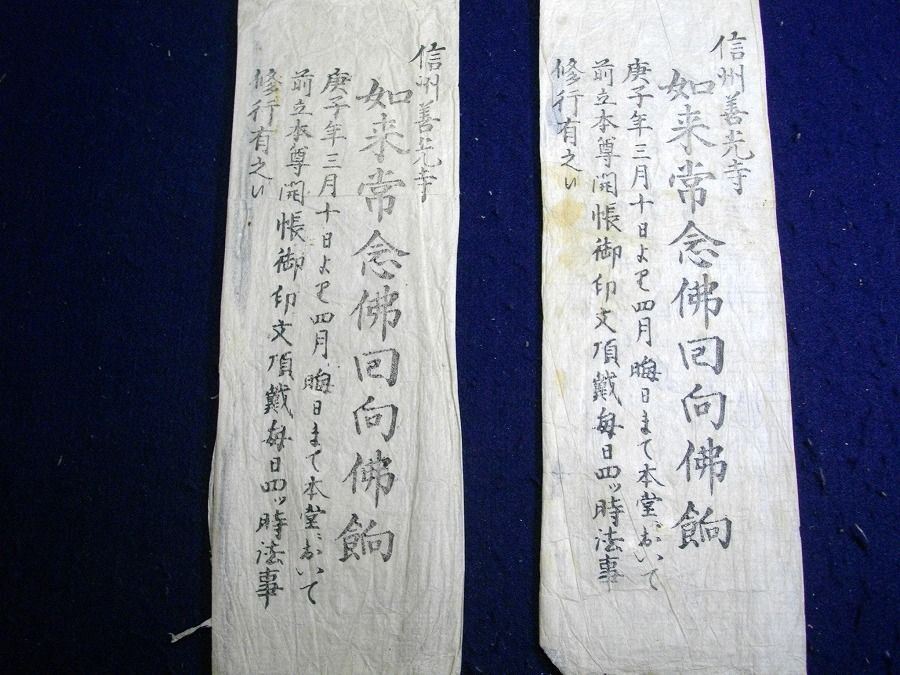 信州善光寺
如来常念佛回向佛餉
庚子年三月十日より四月晦日まて本堂において
前立本尊開帳御印文頂戴毎日四ッ時法事
修行有之
信州善光寺
如来常念佛回向佛餉
庚子年三月十日より四月晦日まて本堂において
前立本尊開帳御印文頂戴毎日四ッ時法事
修行有之